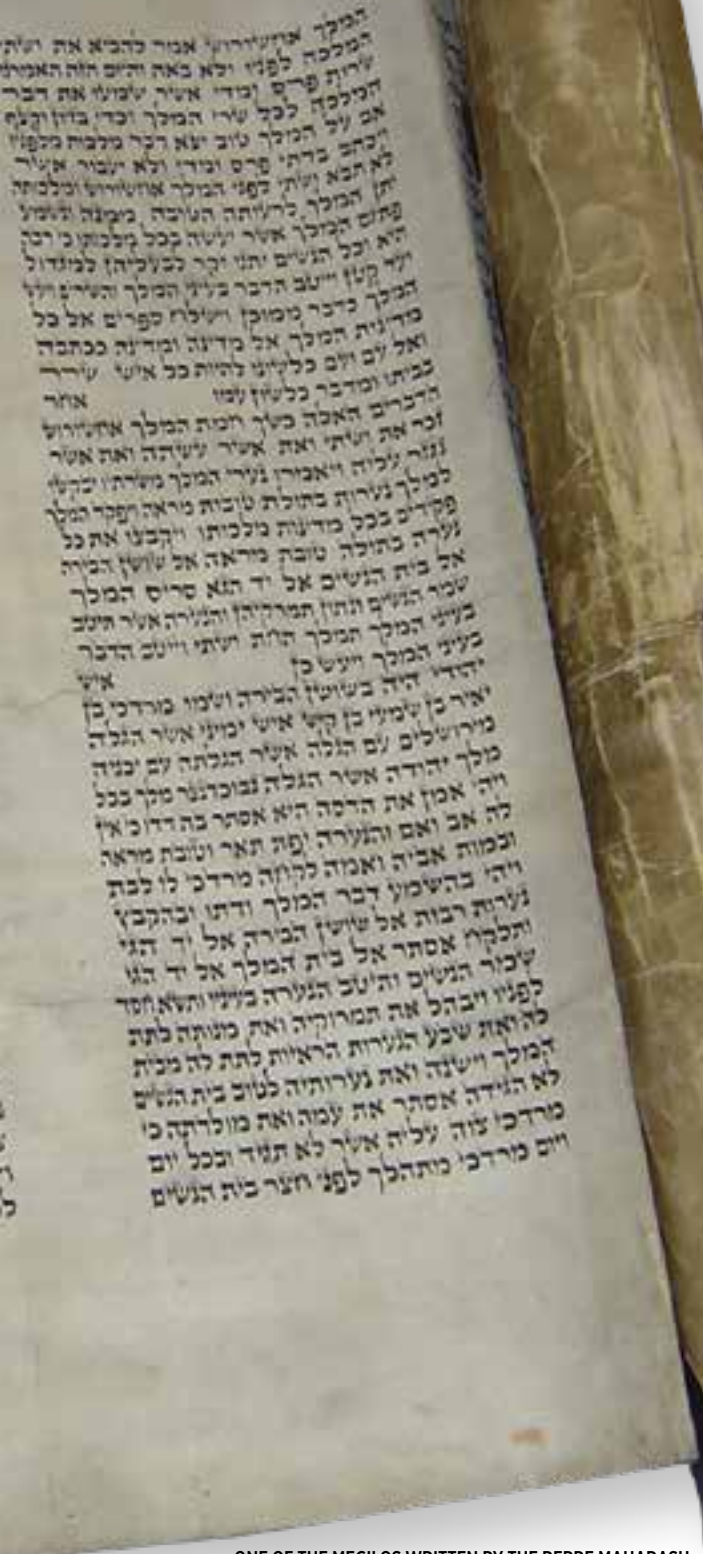 המלך אחשורוש אמר להביא את ושתי
המלכה לפניו ולא באה והיום הזה תאמרנ
שרות פרס ומדי אשר שמעו את דבר
המלכה לכל שרי המלך וכדי בזיון וקצף
אם על המלך טוב יצא דבר מלכות מלפניו
ויכתב בדתי פרס ומדי ולא יעבור אשר
לא תבא ושתי לפני המלך אחשורוש ומלכותה
יתן המלך לרעותה הטובה ממנה ונשמע
פתגם המלך אשר יעשה בכל מלכותו כי רבה
היא וכל הנשים יתנו יקר לבעליהן למגדול
ועד קטן וייטב הדבר בעיני המלך והשרים ויעש
המלך כדבר ממוכן וישלח ספרים אל כל
מדינות המלך אל מדינה ומדינה ככתבה
ואל עם ועם כלשונו להיות כל איש שרר
בביתו ומדבר כלשון עמו אחר
הדברים האלה כשך חמת המלך אחשורוש
זכר את ושתי ואת אשר עשתה ואת אשר
נגזר עליה ויאמרו נערי המלך משרתיו יבקשו
למלך נערות בתולות טובות מראה ויפקד המלך
פקידים בכל מדינות מלכותו ויקבצו את כל
נערה בתולה טובת מראה אל שושן הבירה
אל בית הנשים אל יד הגא סריס המלך
שמר הנשים ונתון תמרקיהן והנערה אשר תיטב
בעיני המלך תמלך תחת ושתי וייטב הדבר
בעיני המלך ויעש כן איש
יהודי היה בשושן הבירה ושמו מרדכי בן
יאיר בן שמעי בן קיש איש ימיני אשר הגלה
מירושלים עם הגלה אשר הגלתה עם יכניה
מלך יהודה אשר הגלה נבוכדנצר מלך בבל
ויהי אמן את הדסה היא אסתר בת דדו כי אין
לה אב ואם והנערה יפת תאר וטובת מראה
ובמות אביה ואמה לקחה מרדכי לו לבת
ויהי בהשמע דבר המלך ודתו ובהקבץ
נערות רבות אל שושן הבירה אל יד הגי
ותלקח אסתר אל בית המלך אל יד הגי
שמר הנשים ותיטב הנערה בעיניו ותשא חסד
לפניו ויבהל את תמרוקיה ואת מנותה לתת
לה ואת שבע הנערות הראיות לתת לה מבית
המלך וישנה ואת נערותיה לטוב בית הנשים
לא הגידה אסתר את עמה ואת מולדתה כי
מרדכי צוה עליה אשר לא תגיד ובכל יום
ויום מרדכי מתהלך לפני חצר בית הנשים
ONE OF THE MEGILOS WRITTEN BY THE REBBE MAHARASH